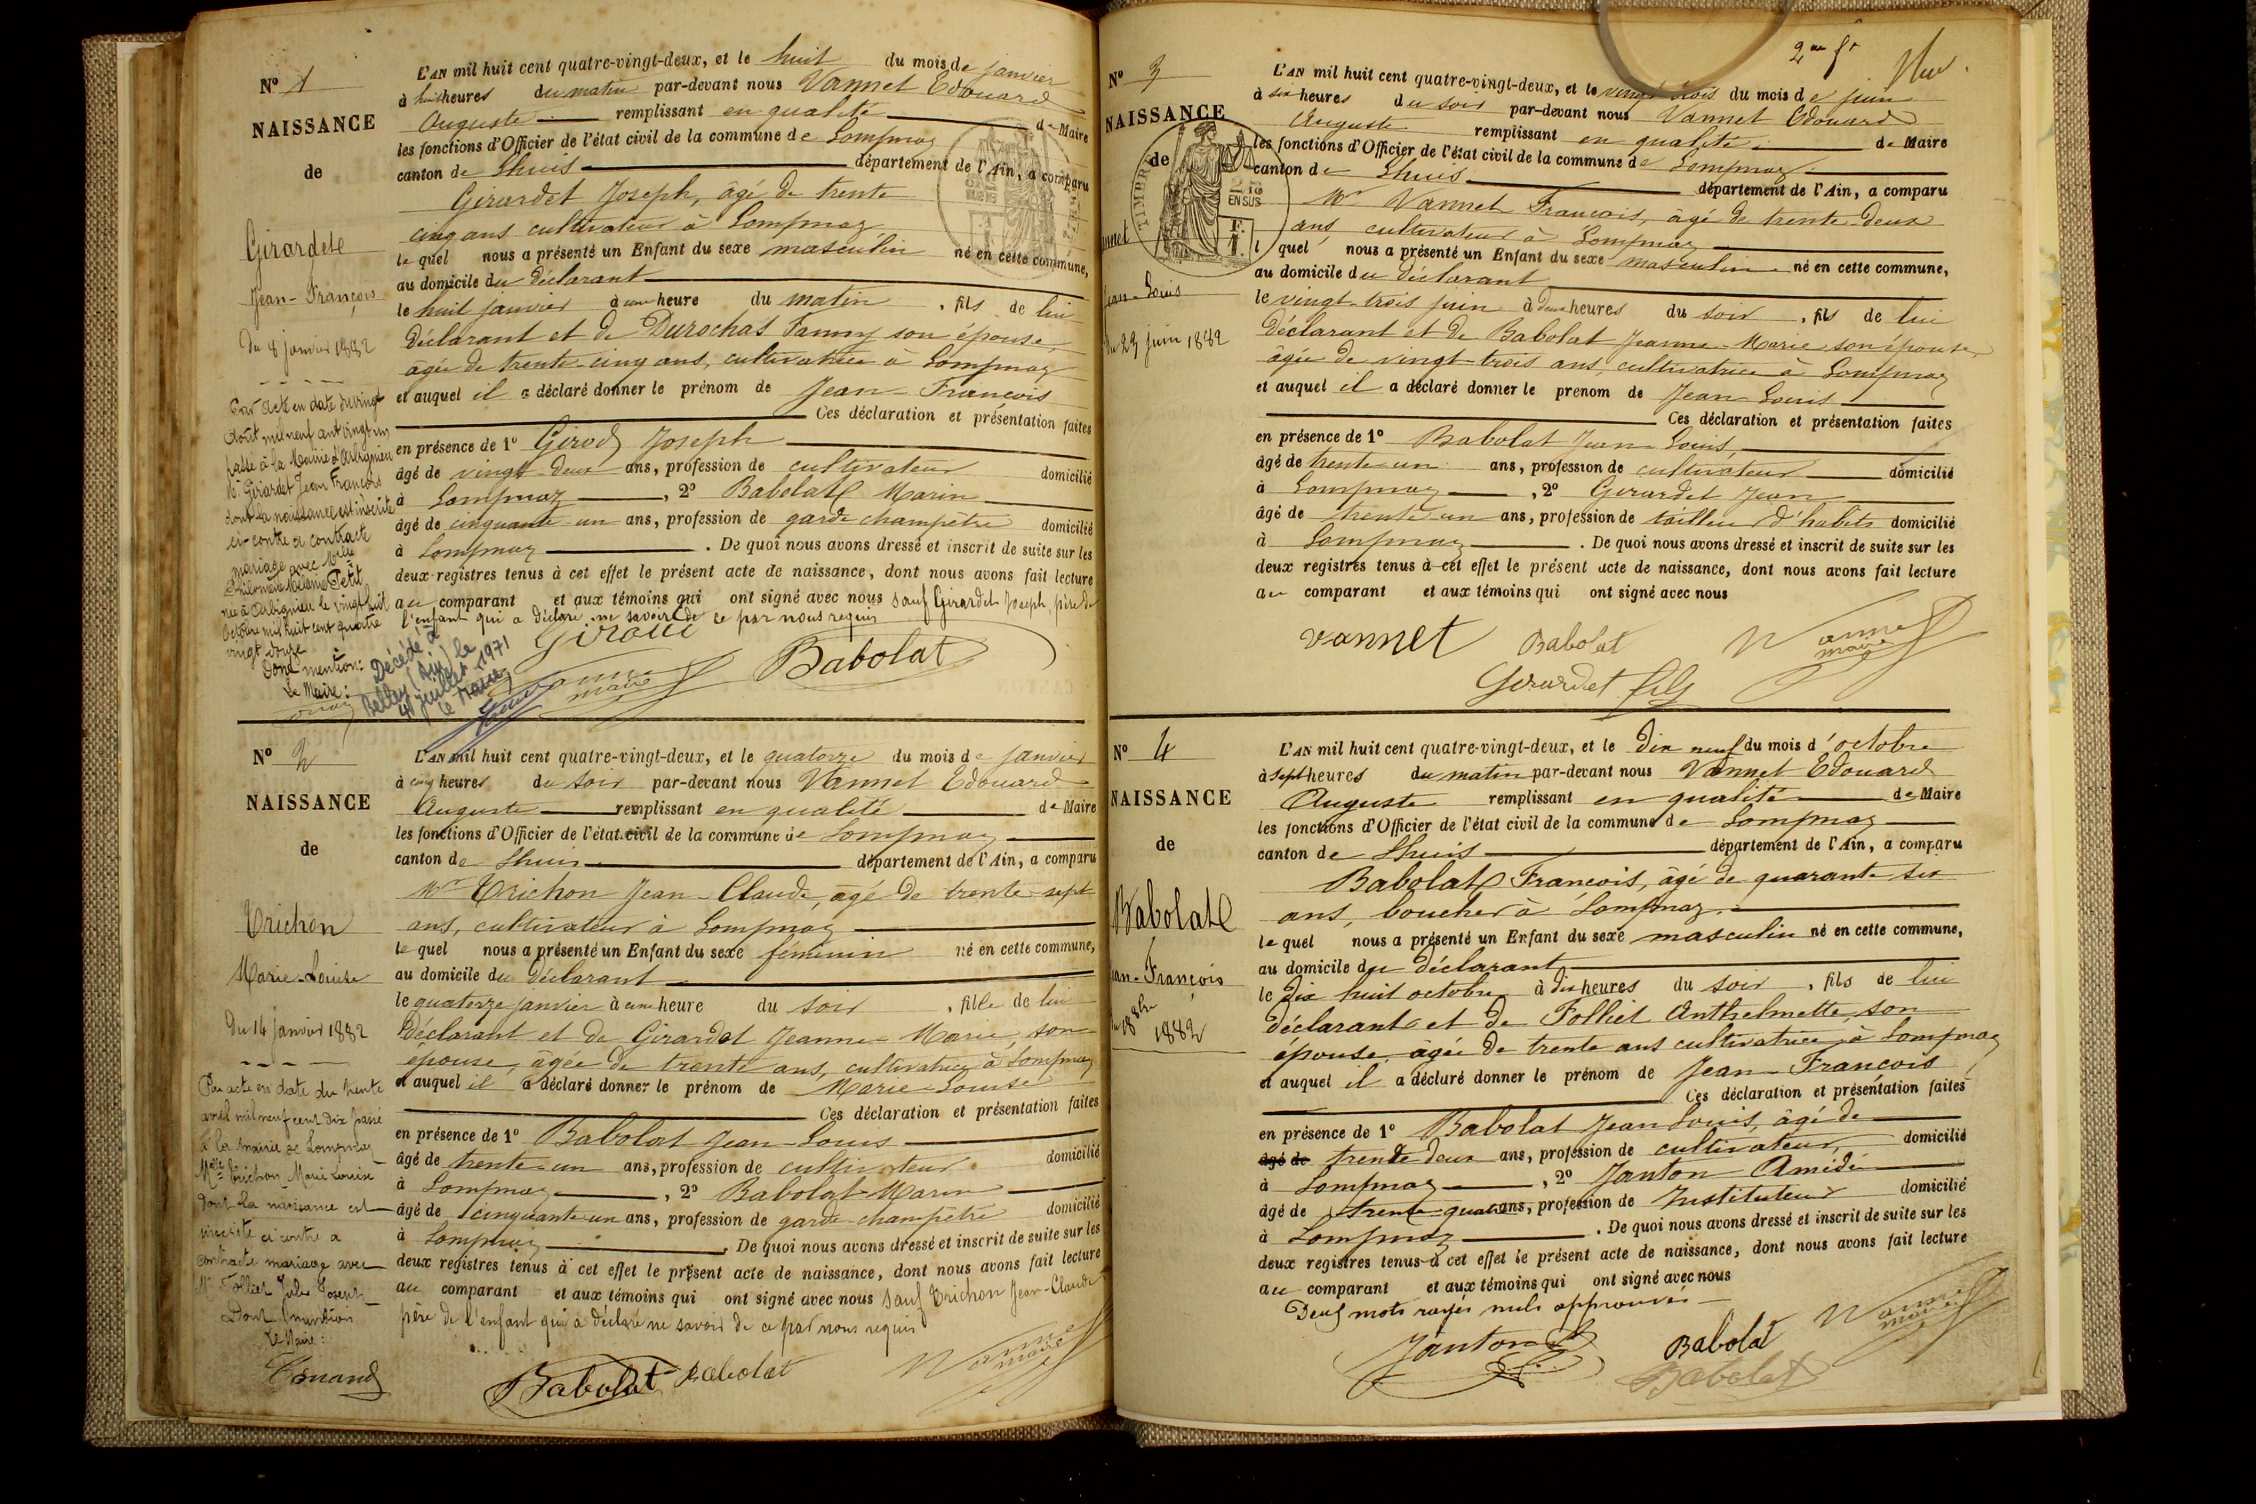 N° 1
NAISSANCE
de
Girardet
Jean-François
Du 8 janvier 1882
Par acte en date du vingt
Août mil neuf cent vingt un
passé à la Mairie d'Arbignieu
Mr Girardet Jean François
dont la naissance est inscrite
ci-contre a contracté
mariage avec Mlle
Philomène Mélanie Petit
née à Arbignieu le vingt huit
Octobre mil huit cent quatre
vingt douze
Dont mention:
Le Maire:
Décédé à
Belley (Ain) le
4 juillet 1971
Le Maire,
L'AN mil huit cent quatre-vingt-deux, et le huit du mois de janvier
à huit heures du matin par-devant nous Vannet Edouard
Auguste remplissant en qualité de Maire
les fonctions d'Officier de l'état civil de la commune de Lompnaz
canton de Lhuis département de l'Ain, a comparu
Girardet Joseph, âgé de trente
cinq ans cultivateur à Lompnaz
le quel nous a présenté un Enfant du sexe masculin né en cette commune,
au domicile du déclarant
le huit janvier à une heure du matin, fils de lui
déclarant et de Durochat Fanny son épouse,
âgée de trente-cinq ans, cultivatrice à Lompnaz
et auquel il a déclaré donner le prénom de Jean-François
Ces déclaration et présentation faites
en présence de 1° Girod Joseph
âgé de vingt-deux ans, profession de cultivateur domicilié
à Lompnaz, 2° Babolat Marin
âgé de cinquante-un ans, profession de garde champêtre domicilié
à Lompnaz. De quoi nous avons dressé et inscrit de suite sur les
deux registres tenus à cet effet le présent acte de naissance, dont nous avons fait lecture
au comparant et aux témoins qui ont signé avec nous sauf Girardet Joseph, père de
l'enfant qui a déclaré ne savoir de ce par nous requis
Babolat
maire
N° 2
NAISSANCE
de
Trichon
Marie-Louise
Du 14 janvier 1882
Par acte en date du trente
avril mil neuf cent dix passé
à la mairie de Lompnaz
Mlle Trichon Marie Louise
dont la naissance est
inscrite ci contre a
contracté mariage avec
Mr Folliet Jules Joseph
Dont mention
Le Maire:
L'AN mil huit cent quatre-vingt-deux, et le quatorze du mois de janvier
à cinq heures du soir par-devant nous Vannet Edouard
Auguste remplissant en qualité de Maire
les fonctions d'Officier de l'état civil de la commune de Lompnaz
canton de Lhuis département de l'Ain, a comparu
Mr Trichon Jean-Claude, âgé de trente-sept
ans, cultivateur à Lompnaz
le quel nous a présenté un Enfant du sexe féminin né en cette commune,
au domicile du déclarant
le quatorze janvier à une heure du soir, fille de lui
déclarant et de Girardet Jeanne-Marie, son
épouse, âgée de trente ans, cultivatrice à Lompnaz
et auquel il a déclaré donner le prénom de Marie-Louise
Ces déclaration et présentation faites
en présence de 1° Babolat Jean-Louis
âgé de trente-un ans, profession de cultivateur domicilié
à Lompnaz, 2° Babolat Marin
âgé de cinquante-un ans, profession de garde-champêtre domicilié
à Lompnaz. De quoi nous avons dressé et inscrit de suite sur les
deux registres tenus à cet effet le présent acte de naissance, dont nous avons fait lecture
au comparant et aux témoins qui ont signé avec nous sauf Trichon Jean-Claude
père de l'enfant qui a déclaré ne savoir de ce par nous requis
Babolat Babolat
maire
N° 3
NAISSANCE
de
nnet
Jean-Louis
Du 23 juin 1882
TIMBRE
EN SUS
L'AN mil huit cent quatre-vingt-deux, et le vingt-trois du mois de juin
à six heures du soir par-devant nous Vannet Edouard
Auguste remplissant en qualité de Maire
les fonctions d'Officier de l'état civil de la commune de Lompnaz
canton de Lhuis département de l'Ain, a comparu
Mr Vannet François, âgé de trente-deux
ans cultivateur à Lompnaz
l quel nous a présenté un Enfant du sexe masculin né en cette commune,
au domicile du déclarant
le vingt-trois juin à deux heures du soir, fils de lui
déclarant et de Babolat Jeanne-Marie son épouse,
âgée de vingt-trois ans, cultivatrice à Lompnaz
et auquel il a déclaré donner le prenom de Jean-Louis
Ces déclaration et présentation faites
en présence de 1° Babolat Jean-Louis,
âgé de trente-un ans, profession de cultivateur domicilié
à Lompnaz, 2° Girardet Jean
âgé de trente-un ans, profession de tailleur d'habits domicilié
à Lompnaz. De quoi nous avons dressé et inscrit de suite sur les
deux registres tenus à cet effet le présent acte de naissance, dont nous avons fait lecture
au comparant et aux témoins qui ont signé avec nous
Vannet Babolat Vannet
maire
Girardet fils
N° 4
NAISSANCE
de
Babolat
Jean-François
Du 18 8bre
1882
L'AN mil huit cent quatre-vingt-deux, et le dix neuf du mois d'octobre
à sept heures du matin par-devant nous Vannet Edouard
Auguste remplissant en qualité de Maire
les fonctions d'Officier de l'état civil de la commune de Lompnaz
canton de Lhuis département de l'Ain, a comparu
Babolat François, âgé de quarante-six
ans, boucher à Lompnaz
le quel nous a présenté un Enfant du sexe masculin né en cette commune,
au domicile du déclarant
le dix huit octobre à dix heures du soir, fils de lui
déclarant et de Folliet Anthelmette, son
épouse âgée de trente ans cultivatrice à Lompnaz
et auquel il a déclaré donner le prénom de Jean-François
Ces déclaration et présentation faites
en présence de 1° Babolat Jean Louis, âgé de
âgé de trente deux ans, profession de cultivateur, domicilié
à Lompnaz, 2° Janton Amédé
âgé de trente quatre ans, profession de Instituteur domicilié
à Lompnaz. De quoi nous avons dressé et inscrit de suite sur les
deux registres tenus à cet effet le présent acte de naissance, dont nous avons fait lecture
au comparant et aux témoins qui ont signé avec nous
Deux mots rayés nuls approuvés
Janton Babolat Vannet
maire
Babolat